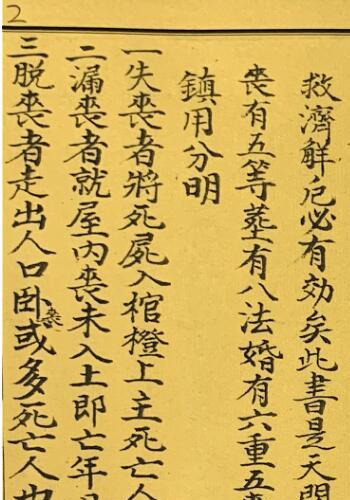 2
救濟解厄必有効矣此書是天明
喪有五等墓有八法婚有六重五喪
鎮用分明
一失喪者將死屍入棺橙上主死亡人
二漏喪者就屋內喪未入土即亡年月
三脱喪者走出人口卧喪或多死亡人也